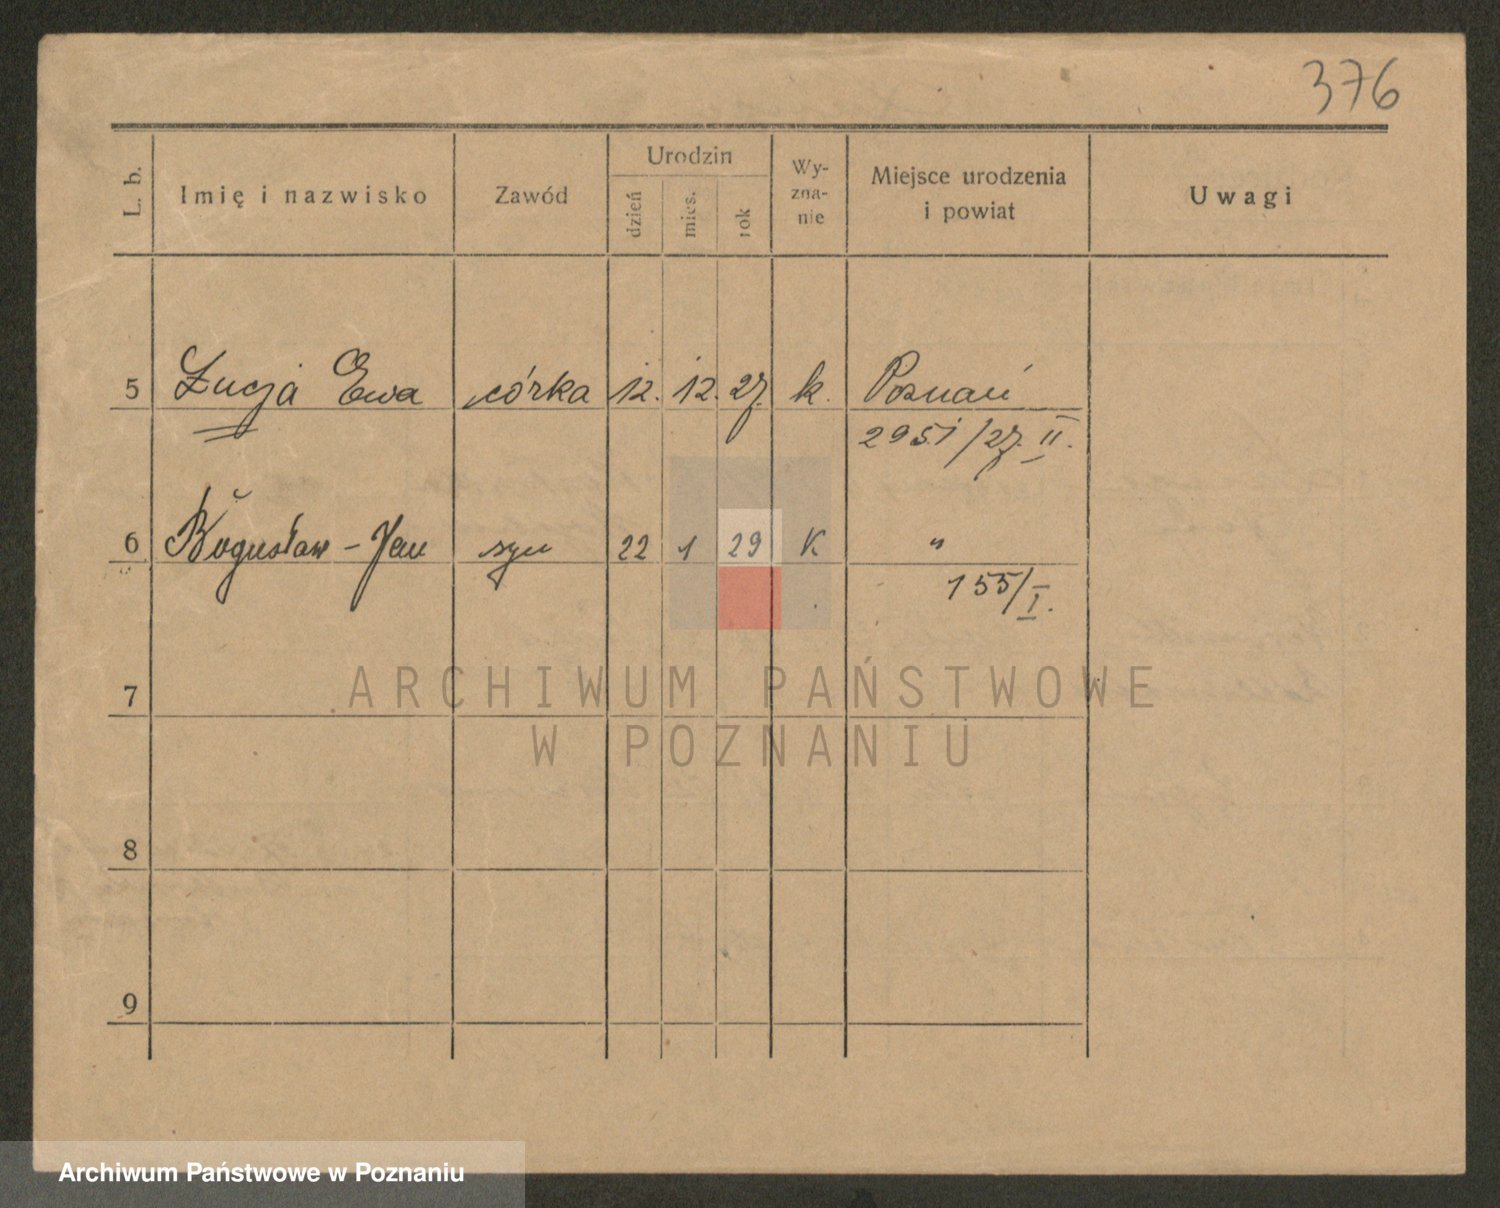 376
L. b.
Imię i nazwisko
Zawód
Urodzin
dzień
mies.
rok
Wy-
zna-
nie
Miejsce urodzenia
i powiat
Uwagi
5 Łucja Ewa córka 12. 12. 27. k. Poznań
2951/27. II.
6 Bogusław - Jan syn 22 1 29 K „
155/I.
7
ARCHIWUM PAŃSTWOWE
W POZNANIU
8
9
Archiwum Państwowe w Poznaniu